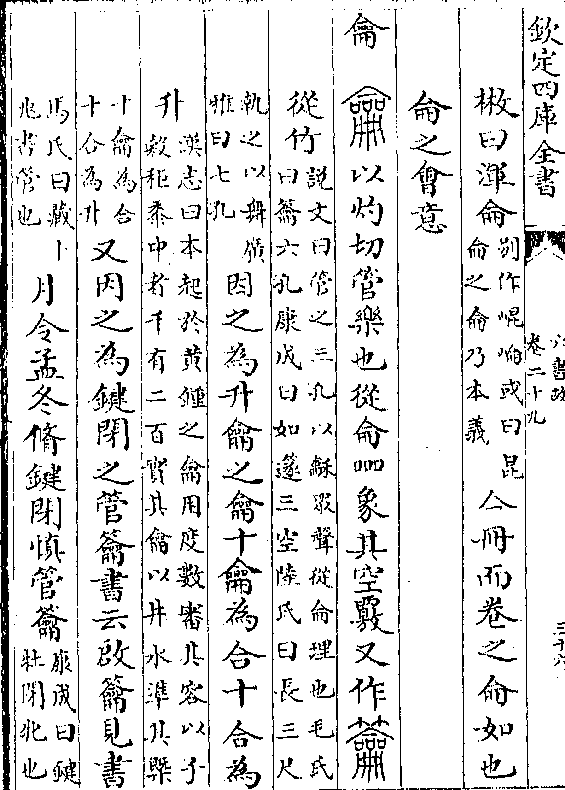 欽定四庫全書
六書故
卷二十九
三十六
㭘曰渾侖別作崐崘或曰昆侖之侖乃本義亼冊而卷之侖如也
侖之會意
龠 龠以灼切管樂也從侖吅象其空竅又作
從竹說文曰管之三孔以龢眾聲從侖理也毛氏曰籥六孔康成曰如篴三空陸氏曰長三尺
執之以舞廣雅曰七孔因之為升龠之龠十龠為合十合為
升漢志曰本起於黃鍾之龠用度數審其容以子糓秬黍中者千有二百實其龠以井水準其槩
十龠為合十合為升又因之為鍵閉之管籥書云啟籥見書
馬氏曰藏卜兆書管也月令孟冬脩鍵閉慎管籥康成曰鍵牡閉牝也